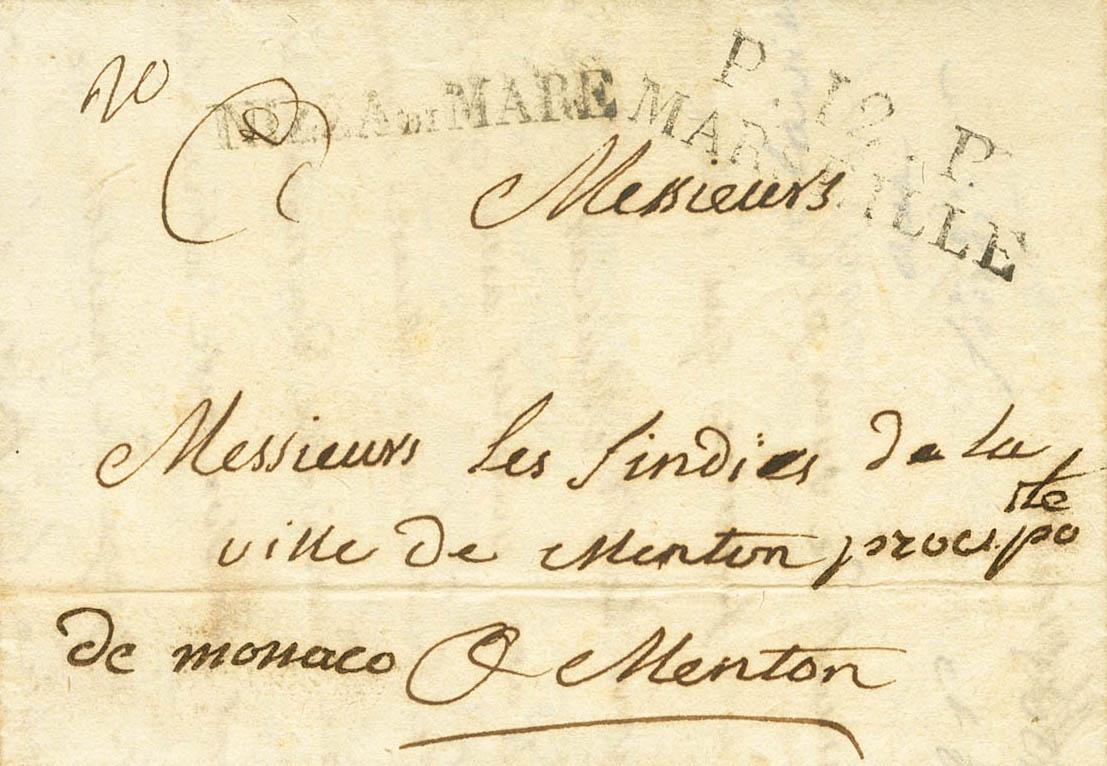 20
NIZZA DI MARE
P. 12. P.
MARSEILLE
A Messieurs
Messieurs les Sindics de la
ville de Menton
de monaco A Menton